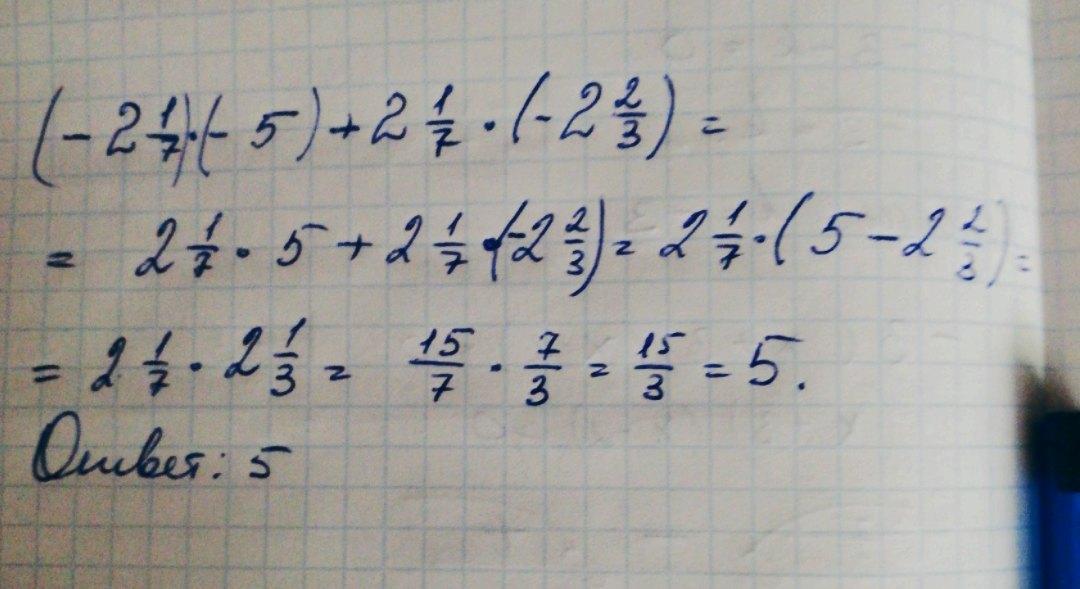 (-2 1/7)·(-5)+2 1/7·(-2 2/3)=
= 2 1/7·5+2 1/7·(-2 2/3)=2 1/7·(5-2 2/3)=
= 2 1/7·2 1/3= 15/7·7/3=15/3=5.
Ответ: 5